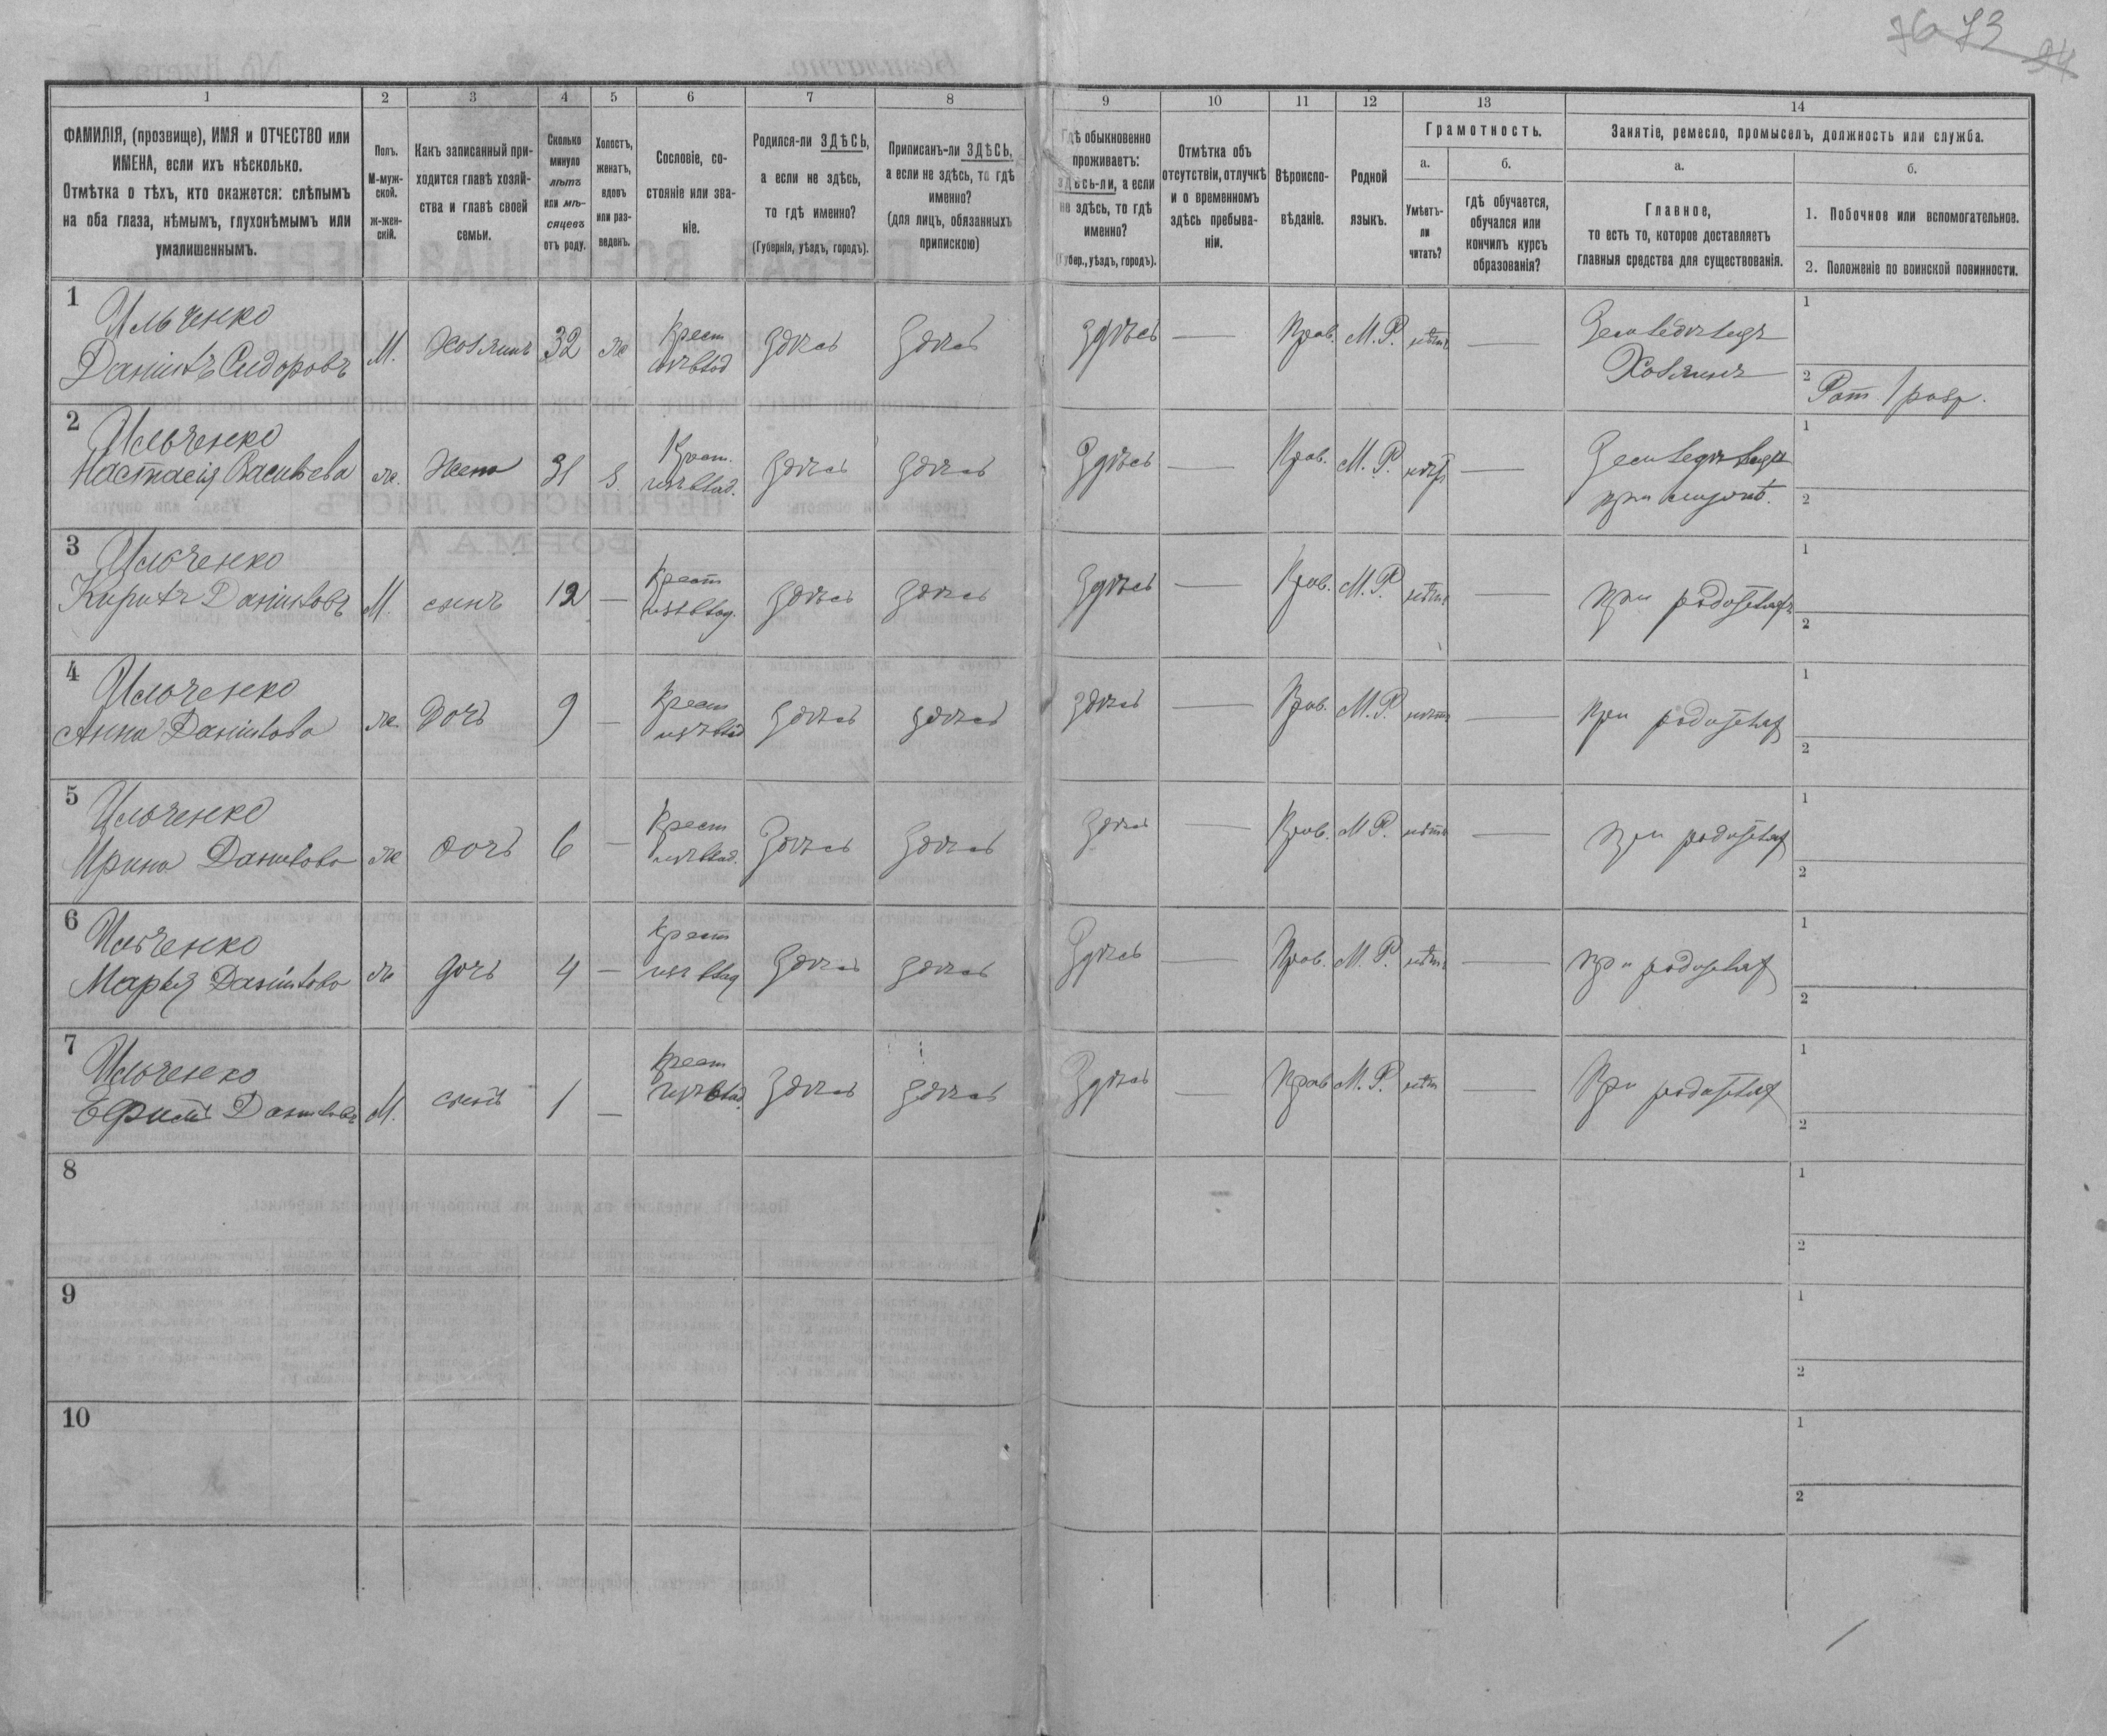 76 73 94
1
2
3
4
5
6
7
8
9
10
11
12
13
14
ФАМИЛІЯ, (прозвище), ИМЯ и ОТЧЕСТВО или
ИМЕНА, если ихъ нѣсколько.
Отмѣтка о тѣхъ, кто окажется: слѣпымъ
на оба глаза, нѣмымъ, глухонѣмымъ или
умалишеннымъ.
Полъ.
М-муж-
ской.
ж-жен-
скій.
Какъ записанный при-
ходится главѣ хозяй-
ства и главѣ своей
семьи.
Сколько
минуло
лѣтъ
или мѣ-
сяцевъ
отъ роду.
Холостъ,
женатъ,
вдовъ
или раз-
веденъ.
Сословіе, со-
стояніе или зва-
ніе.
Родился-ли ЗДѢСЬ,
а если не здѣсь,
то гдѣ именно?
(Губернія, уѣздъ, городъ).
Приписанъ-ли ЗДѢСЬ,
а если не здѣсь, то гдѣ
именно?
(для лицъ, обязанныхъ
припискою)
Гдѣ обыкновенно
проживаетъ:
здѣсь-ли, а если
не здѣсь, то гдѣ
именно?
(Губер., уѣздъ, городъ).
Отмѣтка объ
отсутствіи, отлучкѣ
и о временномъ
здѣсь пребыва-
ніи.
Вѣроиспо-
вѣданіе.
Родной
языкъ.
Грамотность.
а.
Умѣетъ-
ли
читать?
б.
гдѣ обучается,
обучался или
кончилъ курсъ
образованія?
Занятіе, ремесло, промыселъ, должность или служба.
а.
Главное,
то есть то, которое доставляетъ
главныя средства для существованія.
б.
1. Побочное или вспомогательное.
2. Положеніе по воинской повинности.
1
Ильченко
Даніилъ Сидоровъ
М. Хозяинъ 32 ж Крест
собствлад Здѣсь Здѣсь Здѣсь — Прав. М. Р. нѣтъ —
Земледѣлецъ
Хозяинъ
1
2 Рат. 1 разр.
2
Ильченко
Настасія Васильева
ж. Жена 31 з Крест.
Здѣсь Здѣсь Здѣсь — Прав. М. Р. нѣтъ —
при мужѣ.
1
2
3
Ильченко
Кирилъ Даніиловъ
М. сынъ 12 — Крест
Здѣсь Здѣсь Здѣсь — Прав. М. Р. нѣтъ —
при родителяхъ
1
2
4
Ильченко
Анна Даніилова
ж. Дочь 9 — Крест
Здѣсь Здѣсь Здѣсь — Прав. М. Р. нѣтъ —
При родителях
1
2
5
Ильченко
Ирина Данилова
ж дочь 6 — Крест
Здѣсь Здѣсь Здѣсь — Прав. М Р. нѣтъ —
при родителях
1
2
6
Ильченко
Марья Даніилова
ж дочь 4 — Крест
Здѣсь Здѣсь Здѣсь — Прав. М. Р. нѣтъ —
при родителях
1
2
7
Ильченко
Ефимъ Даниловъ
М. сынъ 1 — Крест
Здѣсь Здѣсь Здѣсь — Прав М. Р. нѣт —
При родителях
1
2
8
1
2
9
1
2
10
1
2